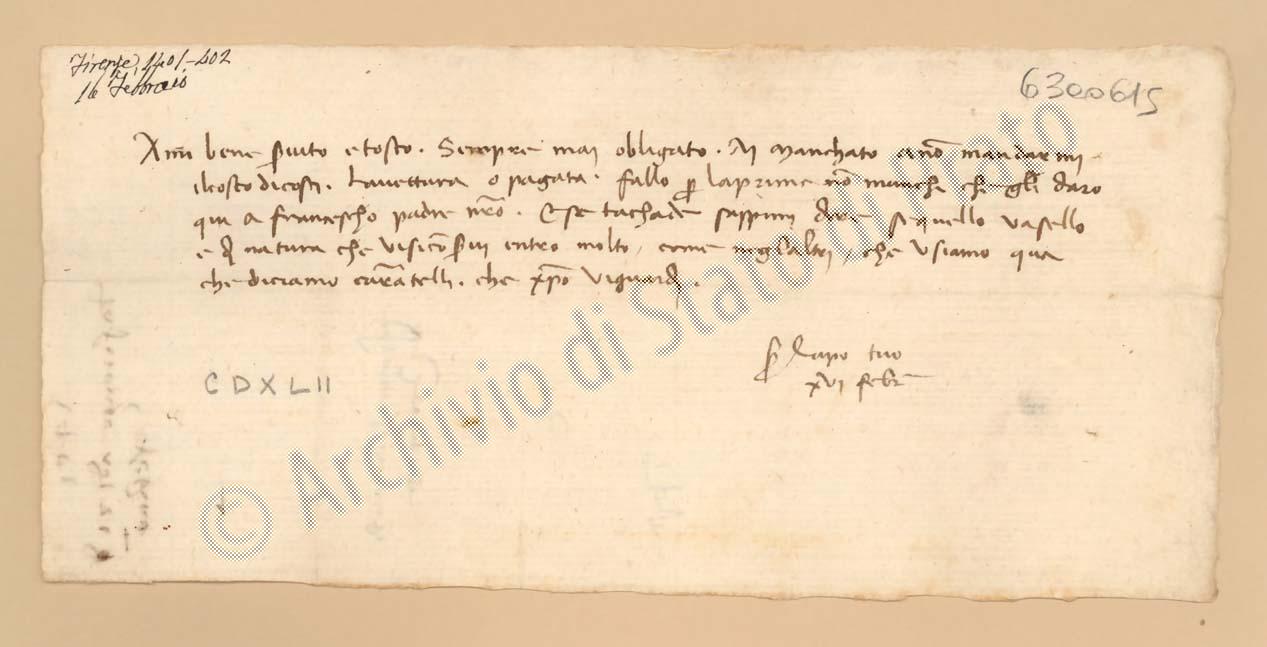 Firenze, 1401-402
16 Febbraio
6300615
Ami bene servito e tosto. Sempre mai obligato. Ài manchato a nō mandarmi
il costo di costì. La vettura o pagata. Fallo p la prima nō manchi che gli daro
qui a Francescho padre nr̄o. E se t'achade sappimi dire se quello vasello
e di natura che visi cōservi entro molto, come negli altri, che usiamo qua
che diciamo caratelli. che xp̄o vi guardi.
S Lapo tuo
XVI febr
CDXLII
© Archivio di Stato di Prato